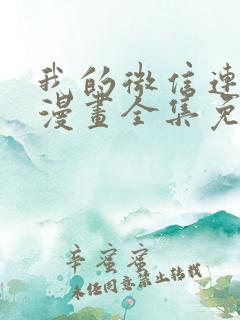 我的微信連
漫畫全集免
辛蜜蜜
未经同意禁止转载